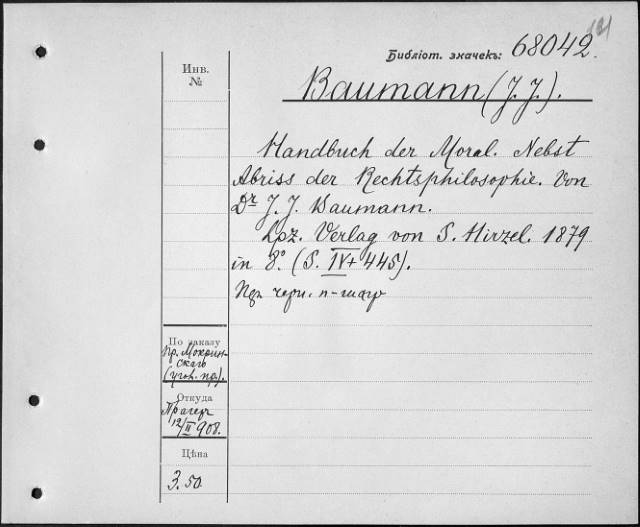 Библіот. значекъ: 68042.
Инв.
№
Baumann (J. J.).
Handbuch der Moral. Nebst
Abriss der Rechtsphilosophie. Von
Dr J. J. Baumann.
Lpz. Verlag von S. Hirzel. 1879
in 8.° (S. IV + 445).
черн.
По заказу
Пр. Мокрин-
скаго
(угол. пр.).
Откуда
Прагеръ
12/II 908.
Цѣна
3.50